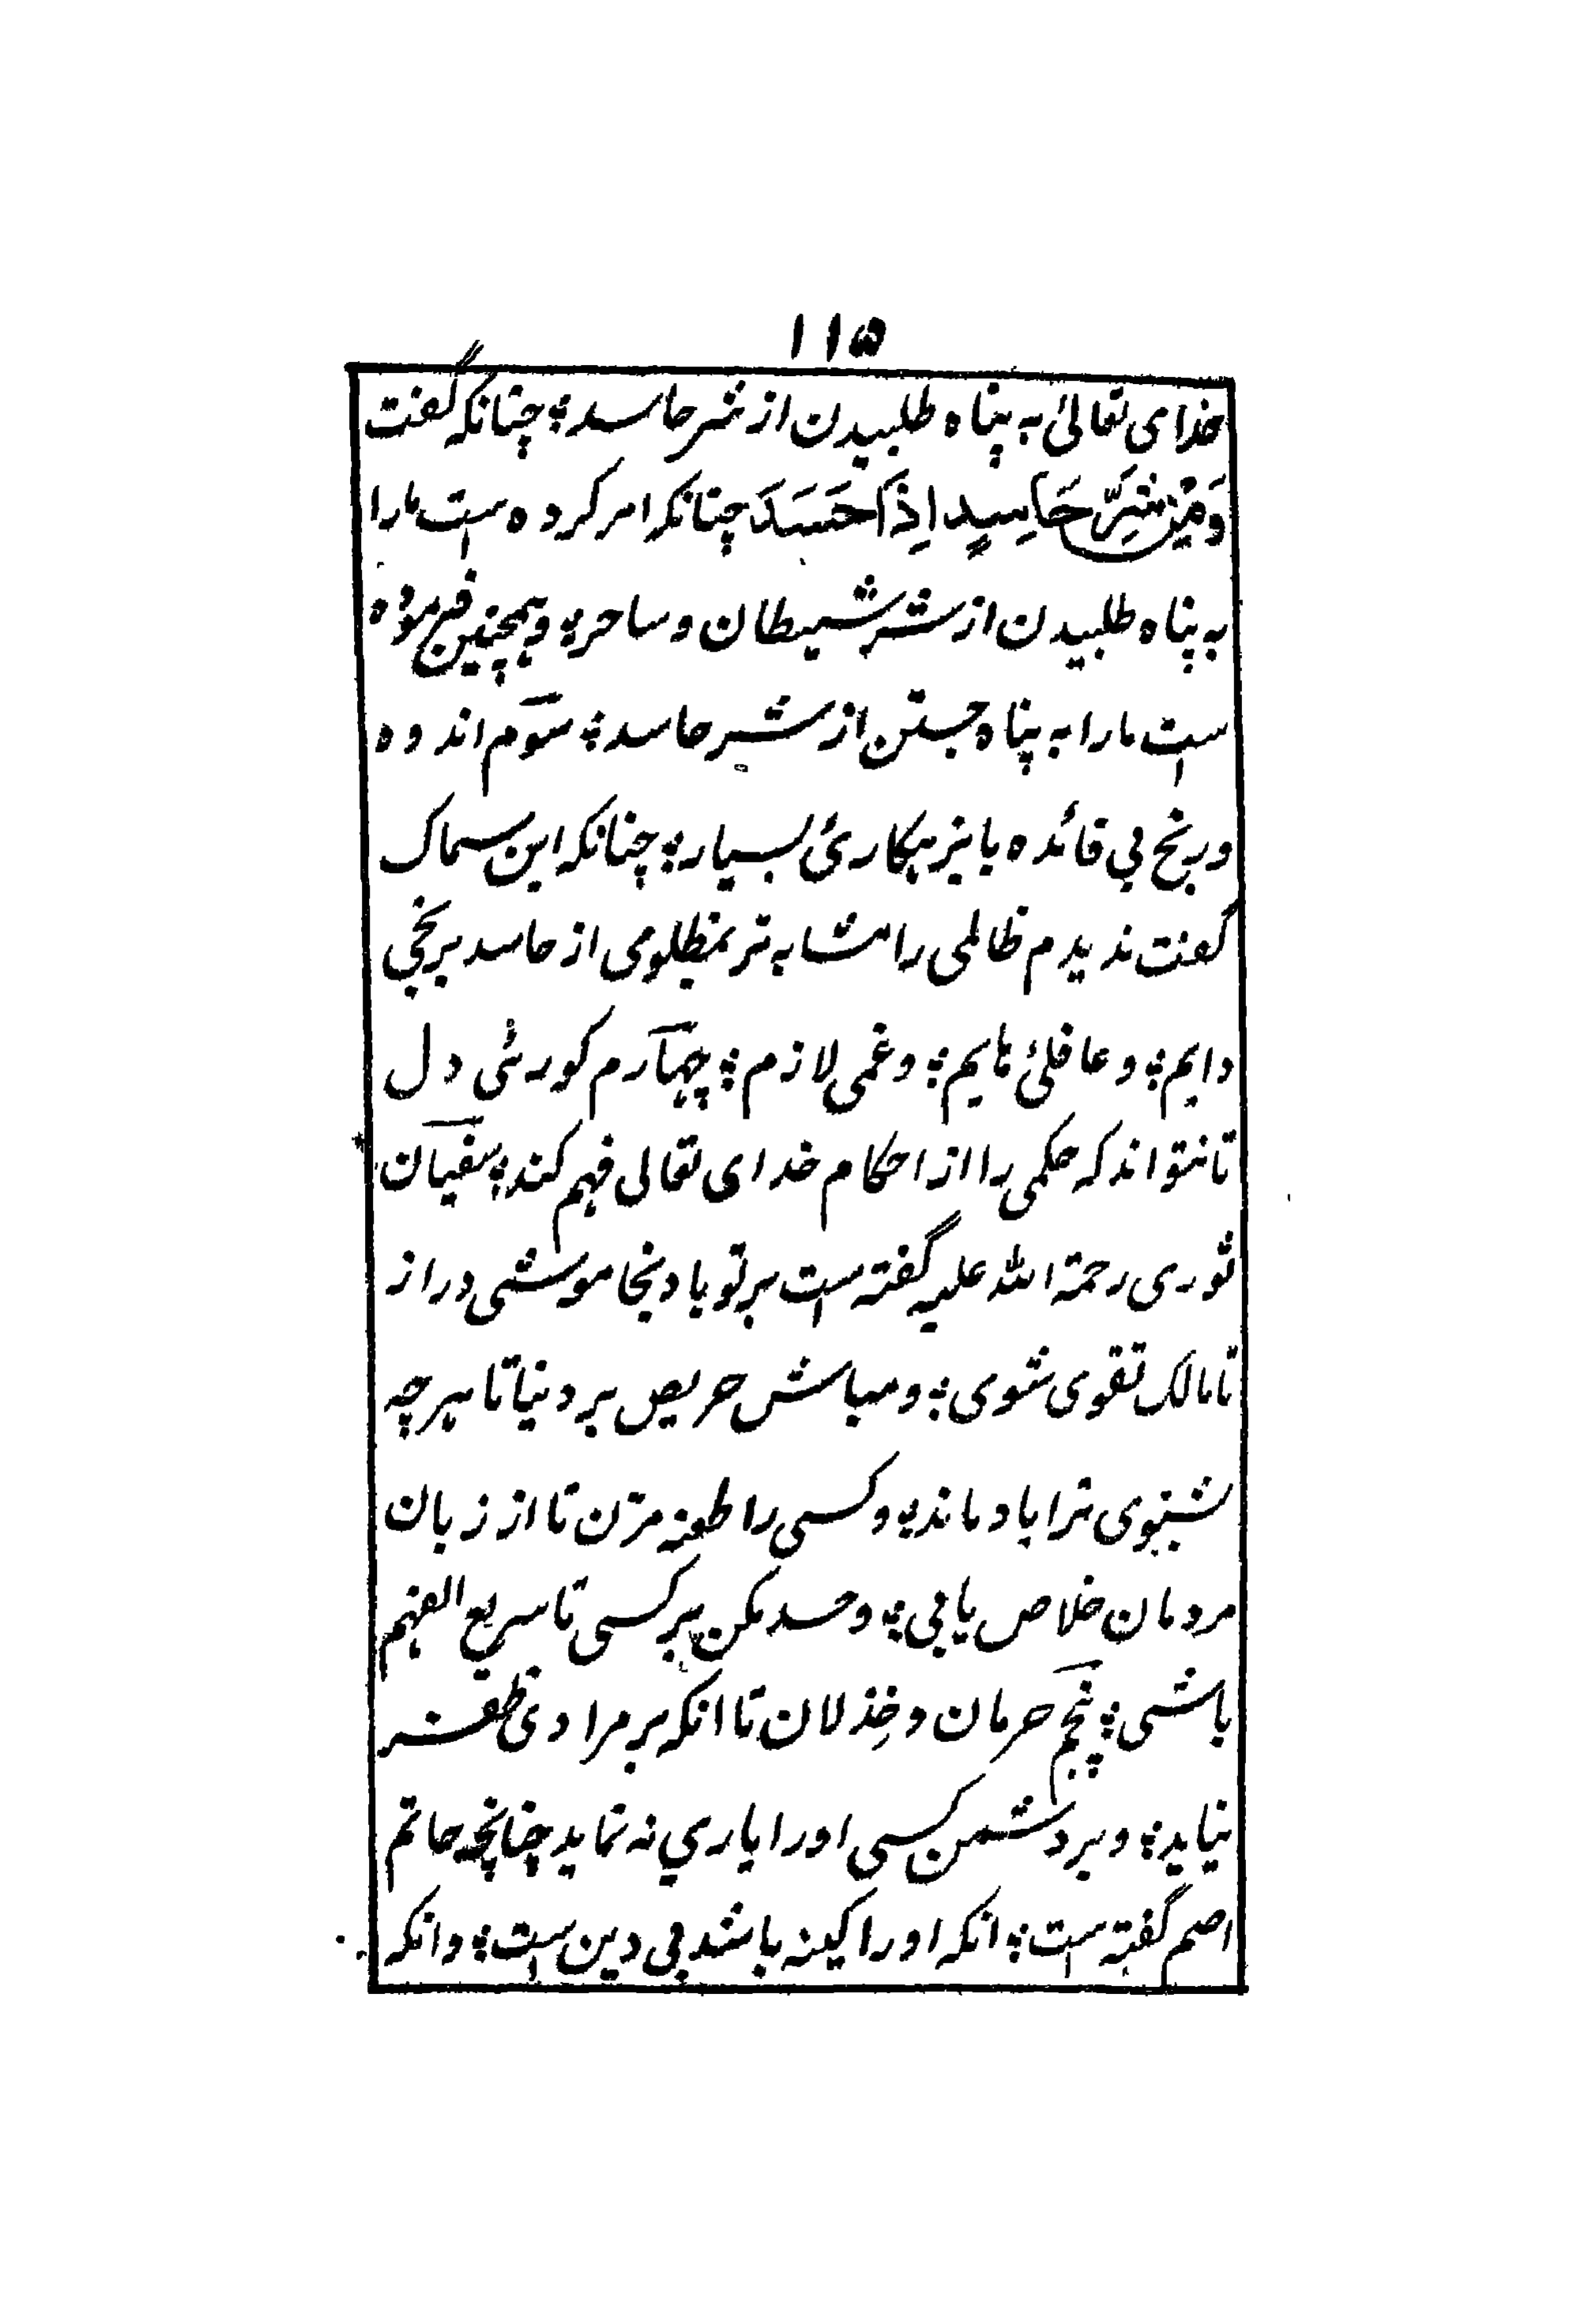 ۱۱۵
خدای تعالیٰ به پناه طلبیدن از شر حاسد؛ چنانکه گفت
وَمِنْ شَرِّ حَاسِدٍ اِذَا حَسَدَ چنانکه امر کرده است مارا
به پناه طلبیدن از شر شیطان و ساحر؛ و همچنین فرموده
است مارا به پناه جستن از شر حاسد؛ سوّم اندوه
و رنج بی فائده با بزهکارئ بسیار؛ چنانکه ابن سماک
گفت ندیدم ظالمی را مشابه تر بمظلومی از حاسد برنجی
دایم؛ و عاقلئ هایم؛ و غمی لازم؛ چهارم کورئی دل
تا نتواند که حکمی را از احکام خدای تعالی فهم کند؛ سفیان
ثوری رحمة الله علیه گفته است بر تو باد بخاموشی دراز
تا مالک تقوی شوی؛ و مباش حریص بر دنیا تا هرچه
شنوی ترا یاد ماند؛ و کسی را طعنه مزن تا از زبان
مردمان خلاص یابی؛ و حسد مکن بر کسی تا سریع الفهم
باشی؛ پنجم حرمان و خِذلان تا انکه بر مرادی ظفر
نیابد؛ و بر دشمن کسی اورا یاري نه نماید چنانچه حاتم
اصم گفته است؛ انکه اورا کینه باشد بی دین است؛ وانکه